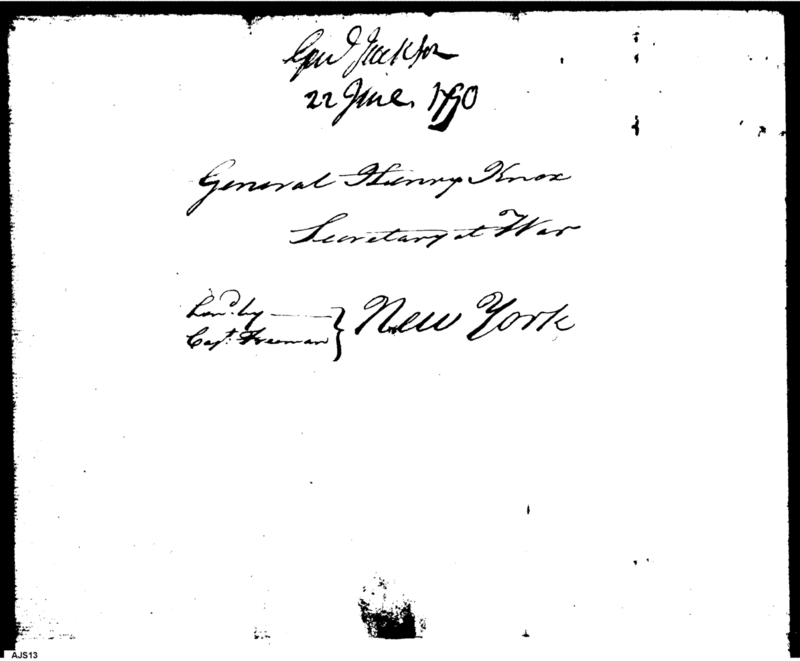 Genl Jackson
22 June 1790
General Henry Knox
Secretary at War
hond. by
Capt. Freeman } New York
AJS13